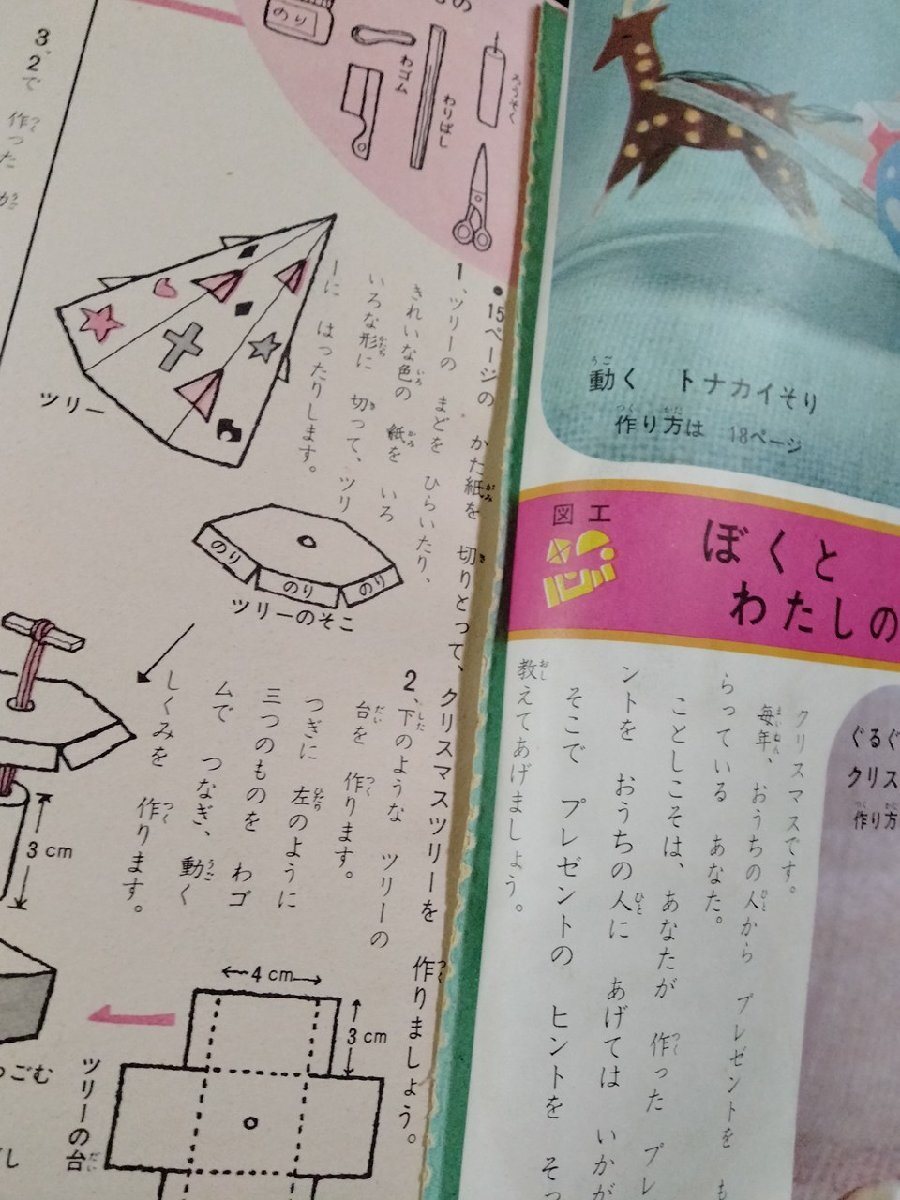 のり
わゴム
わりばし
ろうそく
3、2で 作った
●15ページの かた紙を 切りとって、クリスマスツリーを 作りましょう。
1、ツリーの まどを ひらいたり、
きれいな色の 紙を いろ
いろな形に 切って、ツリ
ーに はったりします。
ツリー
のり
のり
のり
ツリーのそこ
2、下のような ツリーの
台を 作ります。
つぎに 左のように
三つのものを わゴ
ムで つなぎ、動く
しくみを 作ります。
3cm
4cm
3cm
ツリーの台
動く トナカイそり
作り方は 18ページ
図工
ぼくと
わたしの
クリスマスです。
毎年、おうちの人から プレゼントを も
らっている あなた。
ことしこそは、あなたが 作った プレ
ントを おうちの人に あげては いかが
そこで プレゼントの ヒントを そっ
教えてあげましょう。
ぐるぐ
クリス
作り方